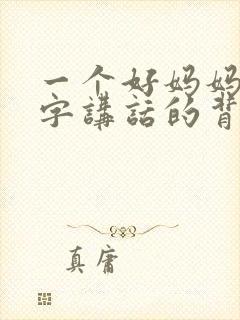 一个好妈妈
字講話的背
真庸